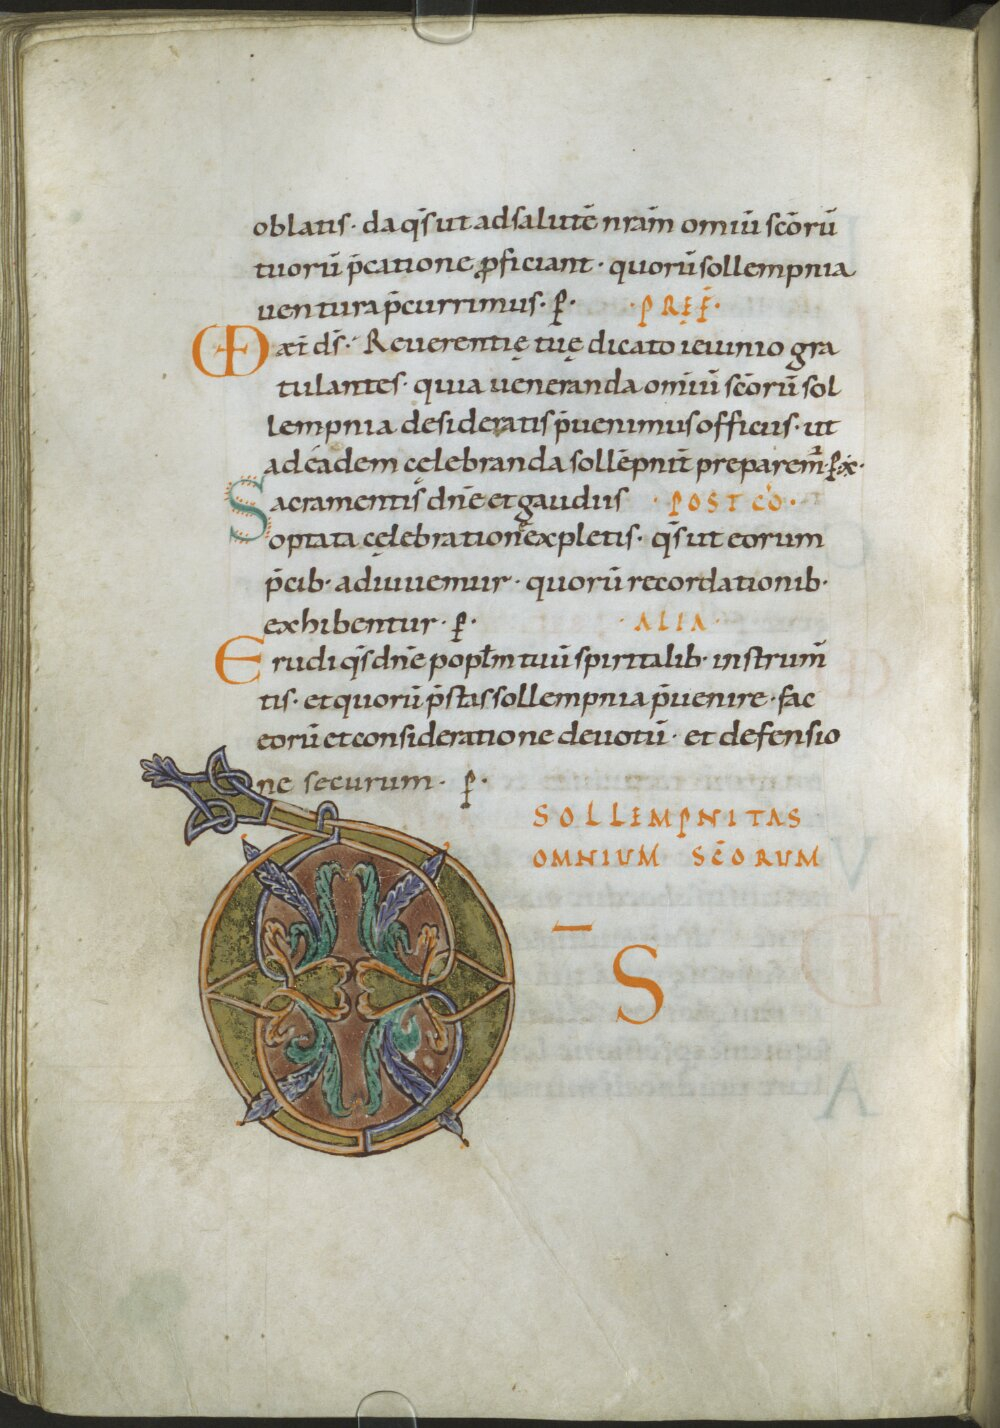 oblatis· da qs̄ ut ad salutē nr̄am omiū sc̄orū
tuorū p̄catione ꝓficiant· quorū sollempnia
uentura p̄currimus· ꝑ· ·PREF·
VD æt̄ ds̄· Reuerentię tuę dicato ieiunio gra
tulantes· quia ueneranda omīuū sc̄orū sol
lempnia desideratis p̄uenimus officiis· ut
ad eadem cęlebranda sollēpnit̄ preparem̄· ꝑ x̄·
Sacramentis dn̄e et gaudiis ·POST CŌ·
optata cęlebratione expletis· qs̄ ut eorum
p̄cib· adiuuemur· quorū recordationib·
exhibentur· ꝑ· ·ALIA·
Erudi qs̄ dn̄e popłm tuū spiritalib· instrum̄
tis· et quorū p̄stas sollempnia p̄uenire· fac
eorū et consideratione deuotū· et defensio
ne securum· ꝑ·
SOLLEMPNITAS
OMNIUM SC̄ORUM
D S̄